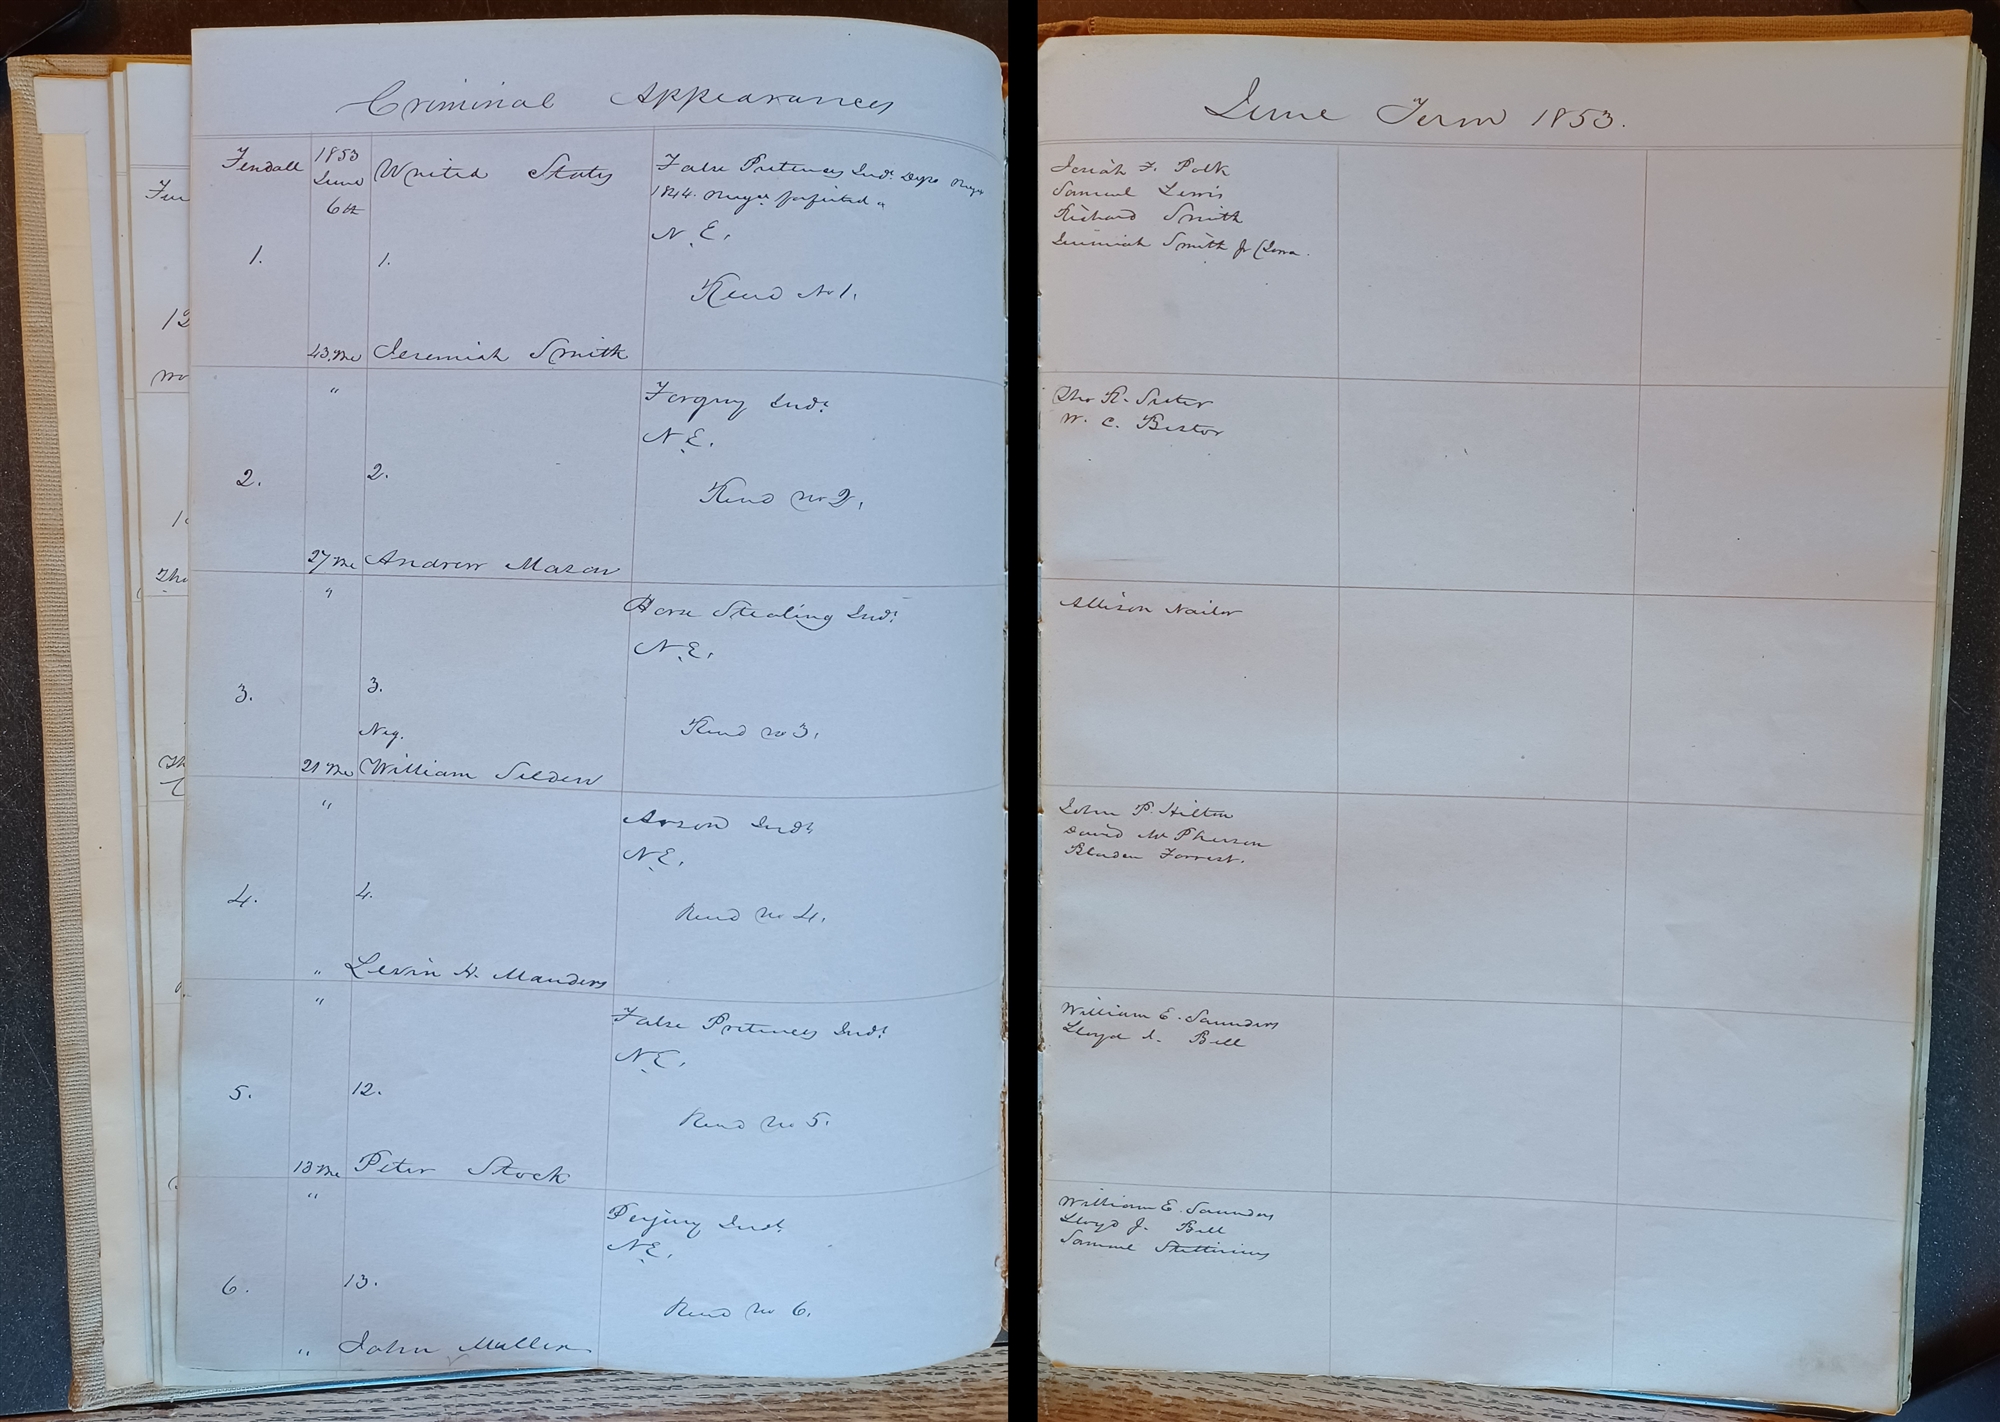 Criminal Appearances
Fendall
1853
June
6th
United States
False Pretences Indt
1844. forfeited
N.E.
1.
1.
Rend No 1.
Jeremiah Smith
"
Forgery Indt
N.E.
2.
2.
Rend no 2.
Andrew Mason
"
Horse Stealing Indt
N.E.
3.
3.
Neg.
Rend no 3.
William Selden
"
Arson Indt
N.E.
4.
4.
Rend no 4.
" Levin H. Manders
"
False Pretences Indt
N.E.
5.
12.
Rend no 5.
Peter Stock
"
Perjury Indt
N.E.
6.
13.
Rend no 6.
" John Muller
June Term 1853.
Josiah F. Polk
Samuel Lewis
Richard Smith
Jeremiah Smith Jr
Tho R. Suter
W. C. Bestor
Allison Nailor
John P. Hilton
David McPherson
Bladen Forrest.
William E. Saunders
Lloyd J. Bell
William E. Saunders
Lloyd J. Bell
Samuel Stettinius